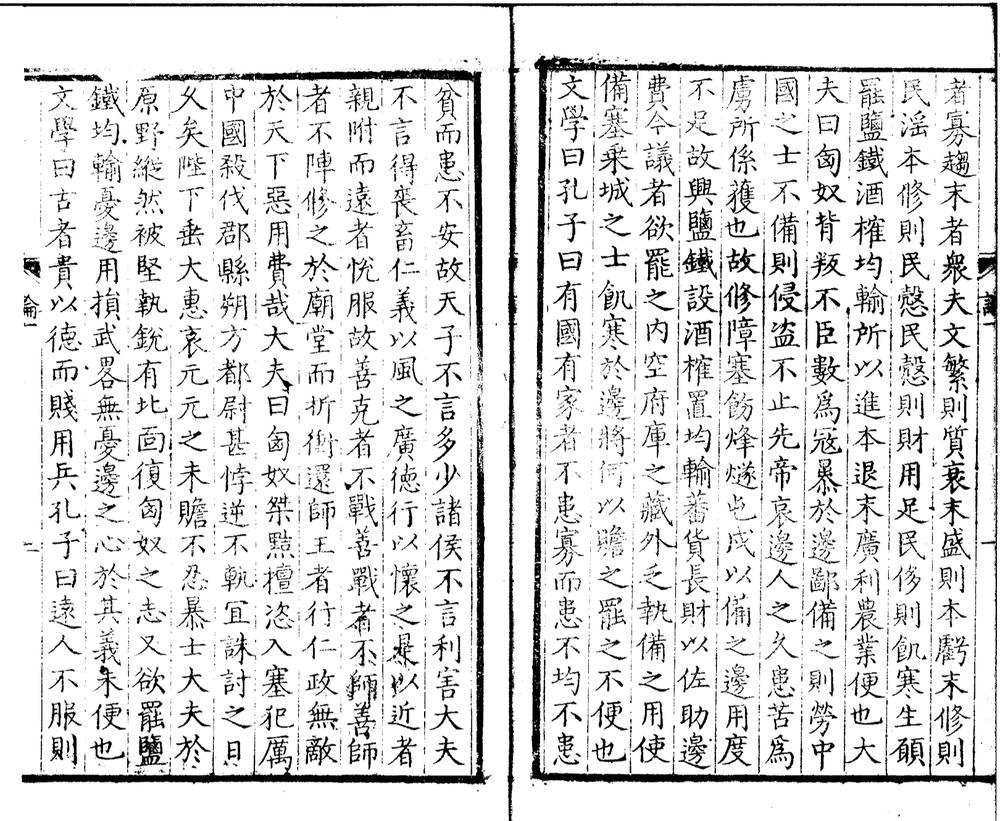 者寡趨末者衆夫文繁則質衰末盛則本虧末修則
民淫本修則民慤民慤則財用足民侈則飢寒生願
罷鹽鐵酒榷均輸所以進本退末廣利農業便也大
夫曰匈奴背叛不臣數爲冦暴於邊鄙備之則勞中
國之士不備則侵盗不止先帝哀邊人之久患苦爲
虜所係獲也故修障塞飭烽燧屯戍以備之邊用度
不足故興鹽鐵設酒榷置均輸蕃貨長財以佐助邊
費今議者欲罷之内空府庫之藏外乏執備之用使
備塞乗城之士飢寒於邊將何以贍之罷之不便也
文學曰孔子曰有國有家者不患寡而患不均不患
貧而患不安故天子不言多少諸侯不言利害大夫
不言得喪畜仁義以風之廣德行以懷之是以近者
親附而遠者恱服故善克者不戰善戰者不師善師
者不陣修之於廟堂而折衝還師王者行仁政無敵
於天下惡用費哉大夫曰匈奴桀黠擅恣入塞犯厲
中國殺伐郡縣朔方都尉甚悖逆不軌冝誅討之日
乆矣陛下垂大惠哀元元之未贍不忍暴士大夫於
原野縱然被堅執銳有北面復匈奴之志又欲罷鹽
鐵均輸憂邊用損武畧無憂邊之心於其義未便也
文學曰古者貴以德而賤用兵孔子曰遠人不服則
論一
二